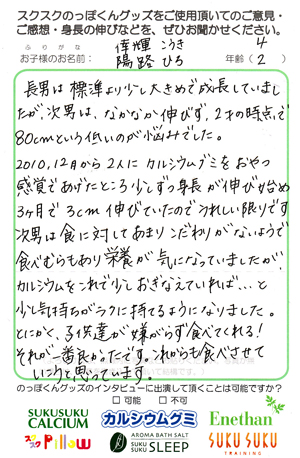 スクスクのっぽくんグッズをご使用頂いてのご意見・
ご感想・身長の伸びなどを、ぜひお聞かせください。
ふりがな
倖輝 こうき 4
お子様のお名前: 陽路 ひろ 年齢( 2 )
長男は標準より少し大きめで成長していまし
たが、次男は、なかなか伸びず、2才の時点で
80cmという低いのが悩みでした。
2010.12月から2人にカルシウムグミをおやつ
感覚であげたところ少しずつ身長が伸び始め
3ヶ月で3cm伸びていたのでうれしい限りです
次男は食に対してあまりこだわりがないようで
食べむらもあり栄養が気になっていましたが
カルシウムをこれで少しおぎなえていれば…と
少し気持ちがラクに持てるようになりました。
とにかく、子供達が嫌がらず食べてくれる!
それが一番良かったです。これからも食べさせて
いこうと思っています。
のっぽくんグッズのインタビューに出演して頂くことは可能ですか?
□可能 □不可
SUKUSUKU
CALCIUM
カルシウムグミ
Enethan
スクスク Pillow
AROMA BATH SALT
SUKU SUKU SLEEP
SUKU SUKU
TRAINING